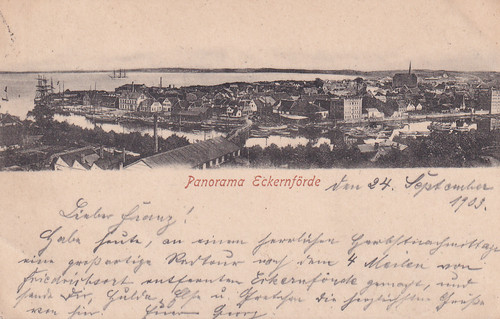 Panorama Eckernförde
den 24. September
1903.
Lieber Franz!
Habe heute, an einem herrlichen Herbstnachmittage
eine großartige Radtour nach dem 4 Meilen von
Friedrichsort entfernten Eckernförde gemacht, und
sende Dir, Hulda, Else u Gretchen die herzlichsten Grüße
von hier. Euer Georg.